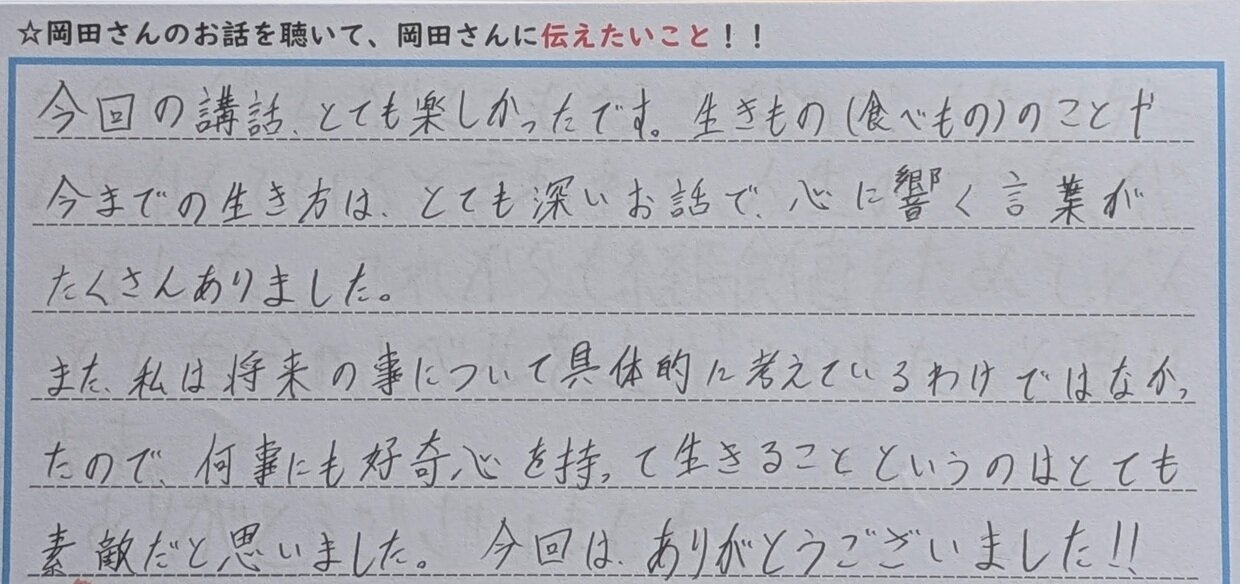 ☆岡田さんのお話を聴いて、岡田さんに伝えたいこと！！
今回の講話、とても楽しかったです。生きもの(食べもの)のことや
今までの生き方は、とても深いお話で、心に響く言葉が
たくさんありました。
また、私は将来の事について具体的に考えているわけではなかっ
たので、何事にも好奇心を持って生きることというのはとても
素敵だと思いました。今回は、ありがとうございました!!